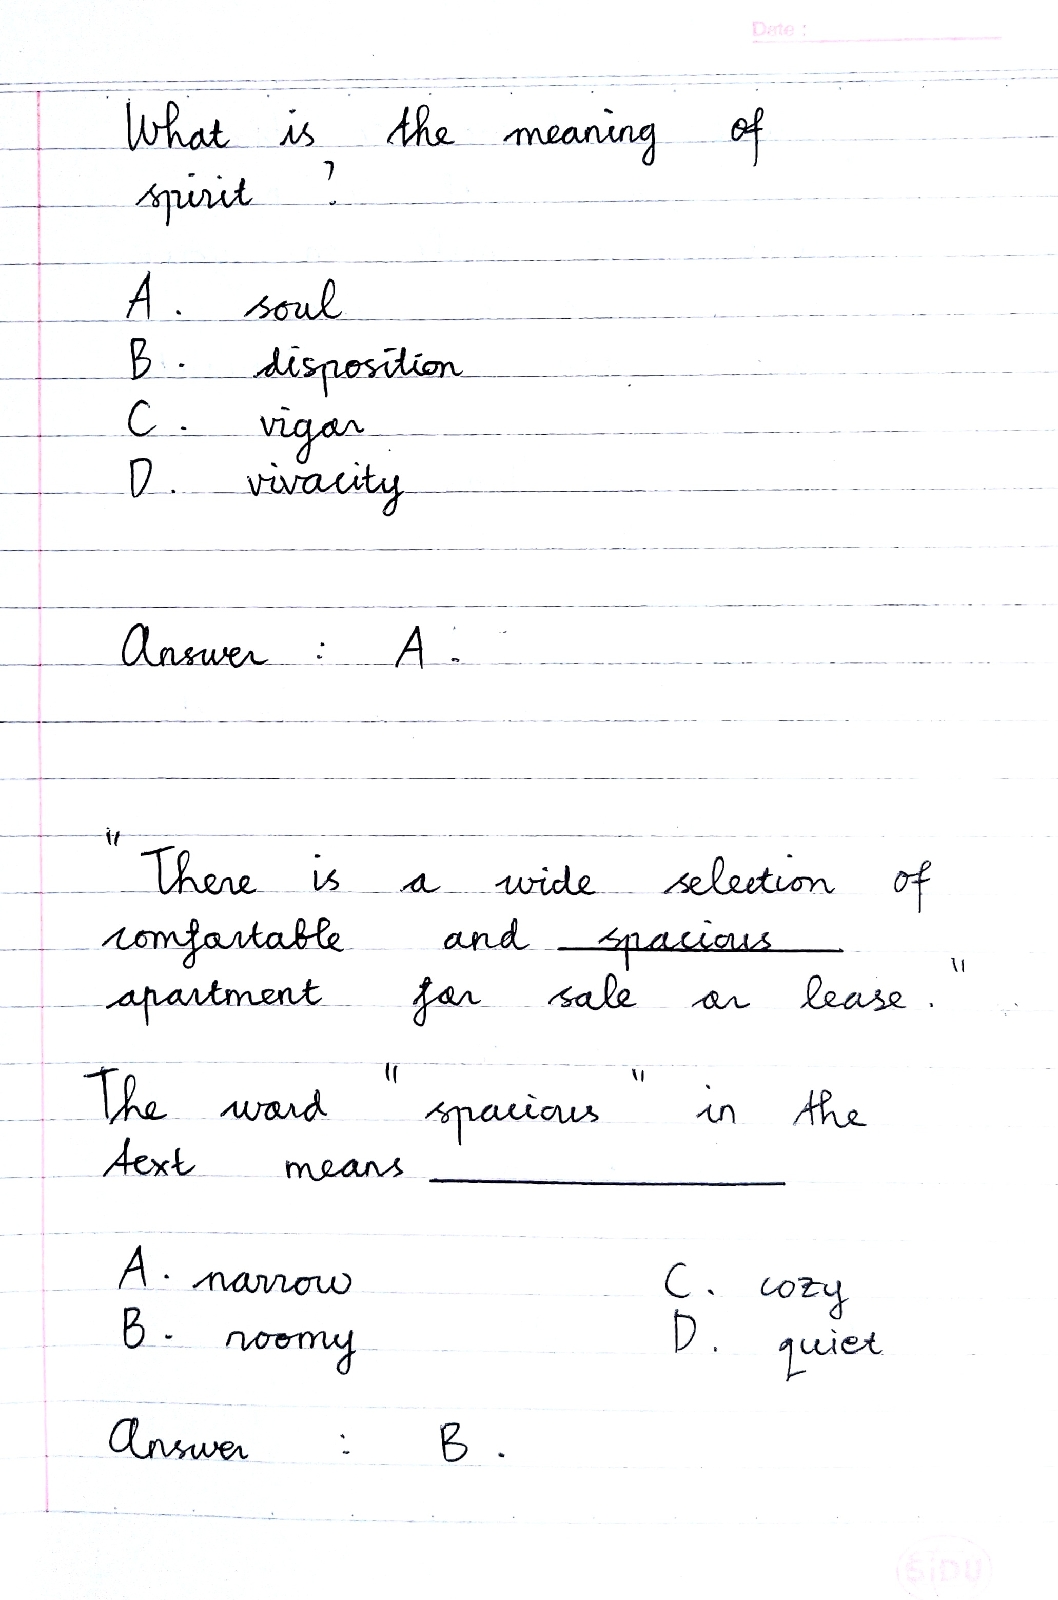 Date :
What is the meaning of
spirit ?
A. soul
B. disposition
C. vigor
D. vivacity
Answer : A.
"There is a wide selection of
comfortable and spacious
apartment for sale or lease."
The word "spacious" in the
text means ____________
A. narrow C. cozy
B. roomy D. quiet
Answer : B.
SiDU